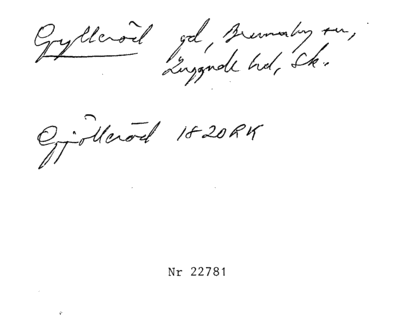 Gylleröd gd, Brunnby sn,
Luggude hd, Sk.
Gjölleröd 1820RK
Nr 22781